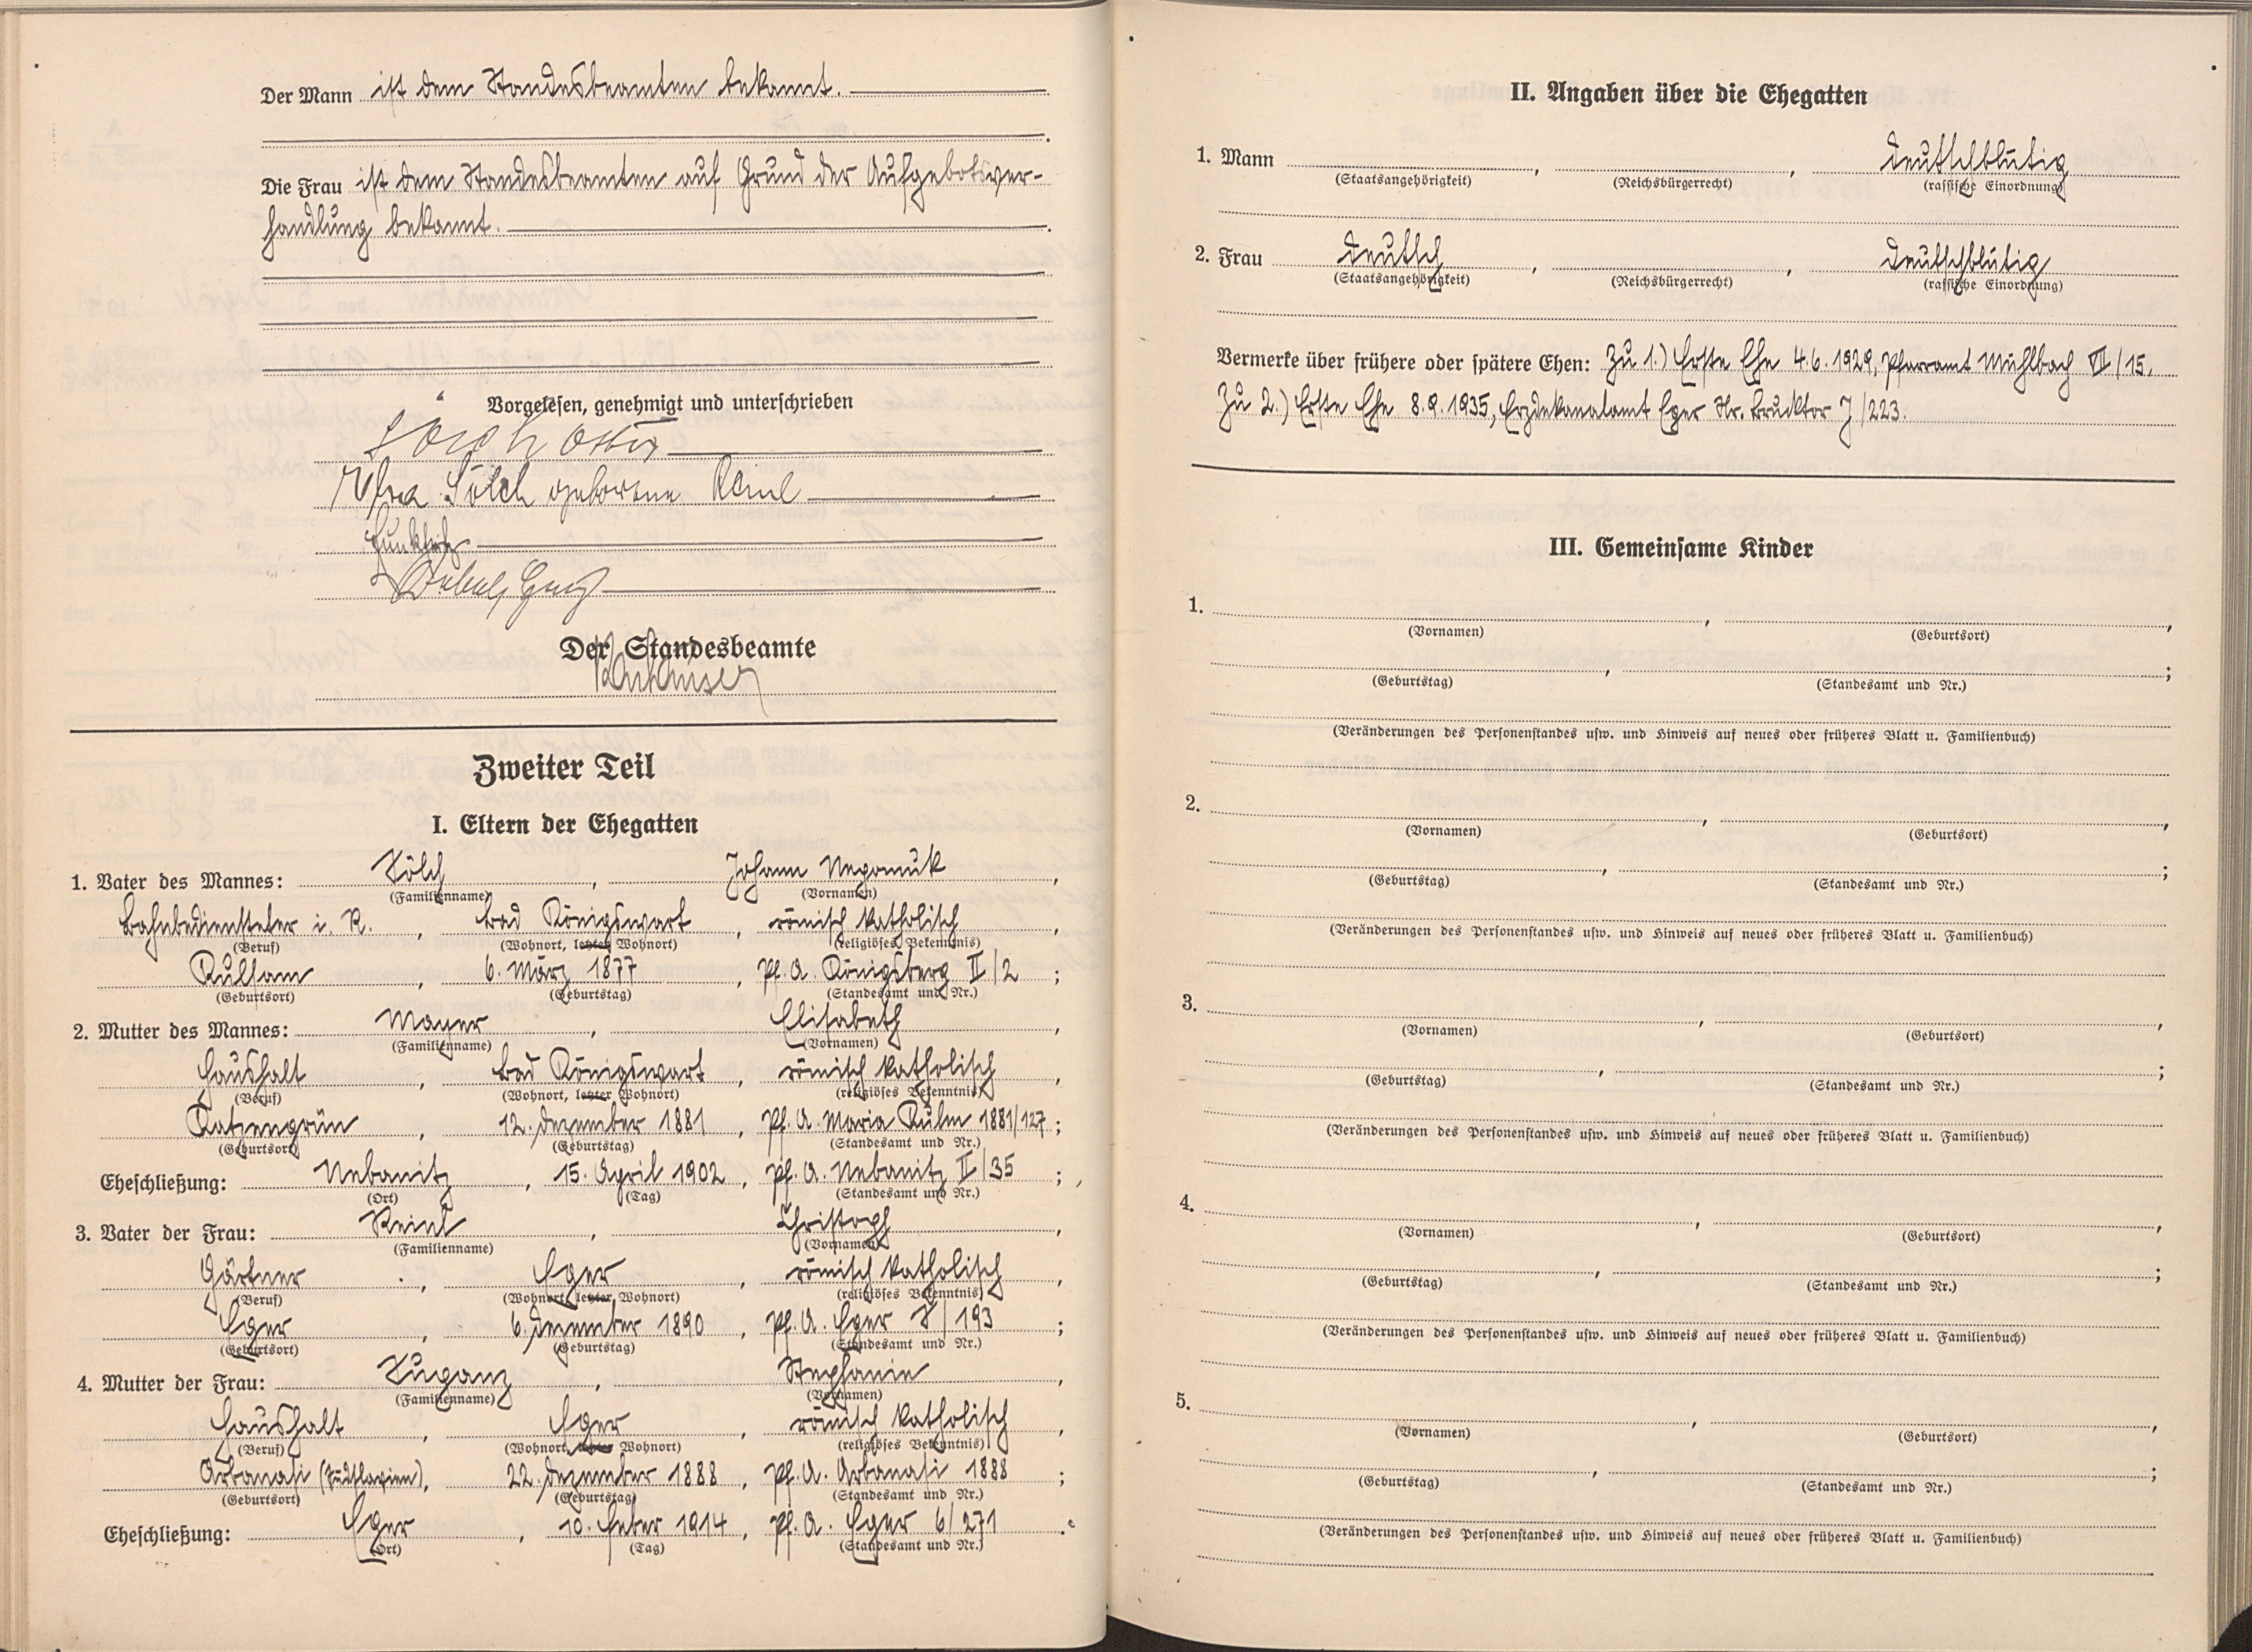 Der Mann ist dem Standesbeamten bekannt.
Die Frau ist dem Standesbeamten auf Grund der Aufgebotsver-
handlung bekannt.
Vorgelesen, genehmigt und unterschrieben
Sölch
Sölch geborene Reinl
Der Standesbeamte
Zweiter Teil
I. Eltern der Ehegatten
1. Vater des Mannes: Sölch, Johann Nepomuk,
(Familienname) (Vornamen)
Bahnbediensteter i. R., Bad Königswart, römisch katholisch,
(Beruf) (Wohnort, letzter Wohnort) (religiöses Bekenntnis)
Kulsam, 6. März 1877, Pf. A. Königsberg II/2;
(Geburtsort) (Geburtstag) (Standesamt und Nr.)
2. Mutter des Mannes: Mayer, Elisabeth,
(Familienname) (Vornamen)
Haushalt, Bad Königswart, römisch katholisch,
(Beruf) (Wohnort, letzter Wohnort) (religiöses Bekenntnis)
Katzengrün, 12. Dezember 1881, Pf. A. Maria Kulm 1881/127;
(Geburtsort) (Geburtstag) (Standesamt und Nr.)
Eheschließung: Nebanitz, 15. April 1902, Pf. A. Nebanitz II/35;
(Ort) (Tag) (Standesamt und Nr.)
3. Vater der Frau: Reinl, Christoph,
(Familienname) (Vornamen)
Gärtner, Eger, römisch katholisch,
(Beruf) (Wohnort, letzter Wohnort) (religiöses Bekenntnis)
Eger, 6. Dezember 1890, Pf. A. Eger /193;
(Geburtsort) (Geburtstag) (Standesamt und Nr.)
4. Mutter der Frau: Stephanie,
(Familienname) (Vornamen)
Haushalt, Eger, römisch katholisch,
(Beruf) (Wohnort, letzter Wohnort) (religiöses Bekenntnis)
Arbanasi (Südslavien), 22. Dezember 1888, Pf. A. Arbanasi 1888;
(Geburtsort) (Geburtstag) (Standesamt und Nr.)
Eheschließung: Eger, 10. Feber 1914, Pf. A. Eger 6/271.
(Ort) (Tag) (Standesamt und Nr.)
II. Angaben über die Ehegatten
1. Mann , , deutschblütig
(Staatsangehörigkeit) (Reichsbürgerrecht) (rassische Einordnung)
2. Frau deutsch, , deutschblütig
(Staatsangehörigkeit) (Reichsbürgerrecht) (rassische Einordnung)
Vermerke über frühere oder spätere Ehen: Zu 1.) Erste Ehe 4.6.1929, Pfarramt Mühlbach VII/15.
Zu 2.) Erste Ehe 8.9.1935, Erzdekanalamt Eger Nr. J/223.
III. Gemeinsame Kinder
1. , ,
(Vornamen) (Geburtsort)
, ;
(Geburtstag) (Standesamt und Nr.)
(Veränderungen des Personenstandes usw. und Hinweis auf neues oder früheres Blatt u. Familienbuch)
2. , ,
(Vornamen) (Geburtsort)
, ;
(Geburtstag) (Standesamt und Nr.)
(Veränderungen des Personenstandes usw. und Hinweis auf neues oder früheres Blatt u. Familienbuch)
3. , ,
(Vornamen) (Geburtsort)
, ;
(Geburtstag) (Standesamt und Nr.)
(Veränderungen des Personenstandes usw. und Hinweis auf neues oder früheres Blatt u. Familienbuch)
4. , ,
(Vornamen) (Geburtsort)
, ;
(Geburtstag) (Standesamt und Nr.)
(Veränderungen des Personenstandes usw. und Hinweis auf neues oder früheres Blatt u. Familienbuch)
5. , ,
(Vornamen) (Geburtsort)
, ;
(Geburtstag) (Standesamt und Nr.)
(Veränderungen des Personenstandes usw. und Hinweis auf neues oder früheres Blatt u. Familienbuch)